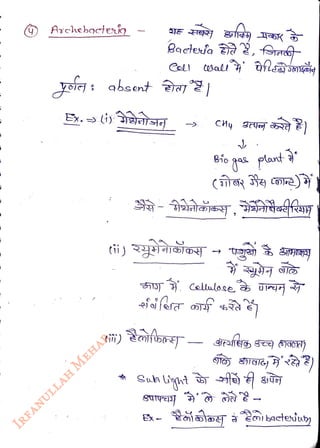 ④ Archebacteria –
यह सबसे प्रकार के
Bacteria होते है, जिनकी
Cell Wall में
पूर्णतः absent होता है।
Ex. ⇒ (i) मेथेनोजन → CH4 उत्पन्न करते है।
↓
Bio gas plant में
(गोबर गैस प्लान्ट) में
जैसे - मेथेनोकोकस, मेथेनोबैक्टीरियम
(ii) रयुमेनोकॉकस → पशुओं के आमाशय
में रयुमेन वाले
भाग में Cellulose के पाचन से
संबंधित कार्य करते है।
(iii) हैलोफिल्स — अत्यधिक उच्च लवणता
वाले में रहते है।
* Sun light को सीधे ही अपने
उपापचय में ले लेते है –
Ex - हैलोकोकस व हैलोbacterium
IRFANULLAH MEHAR